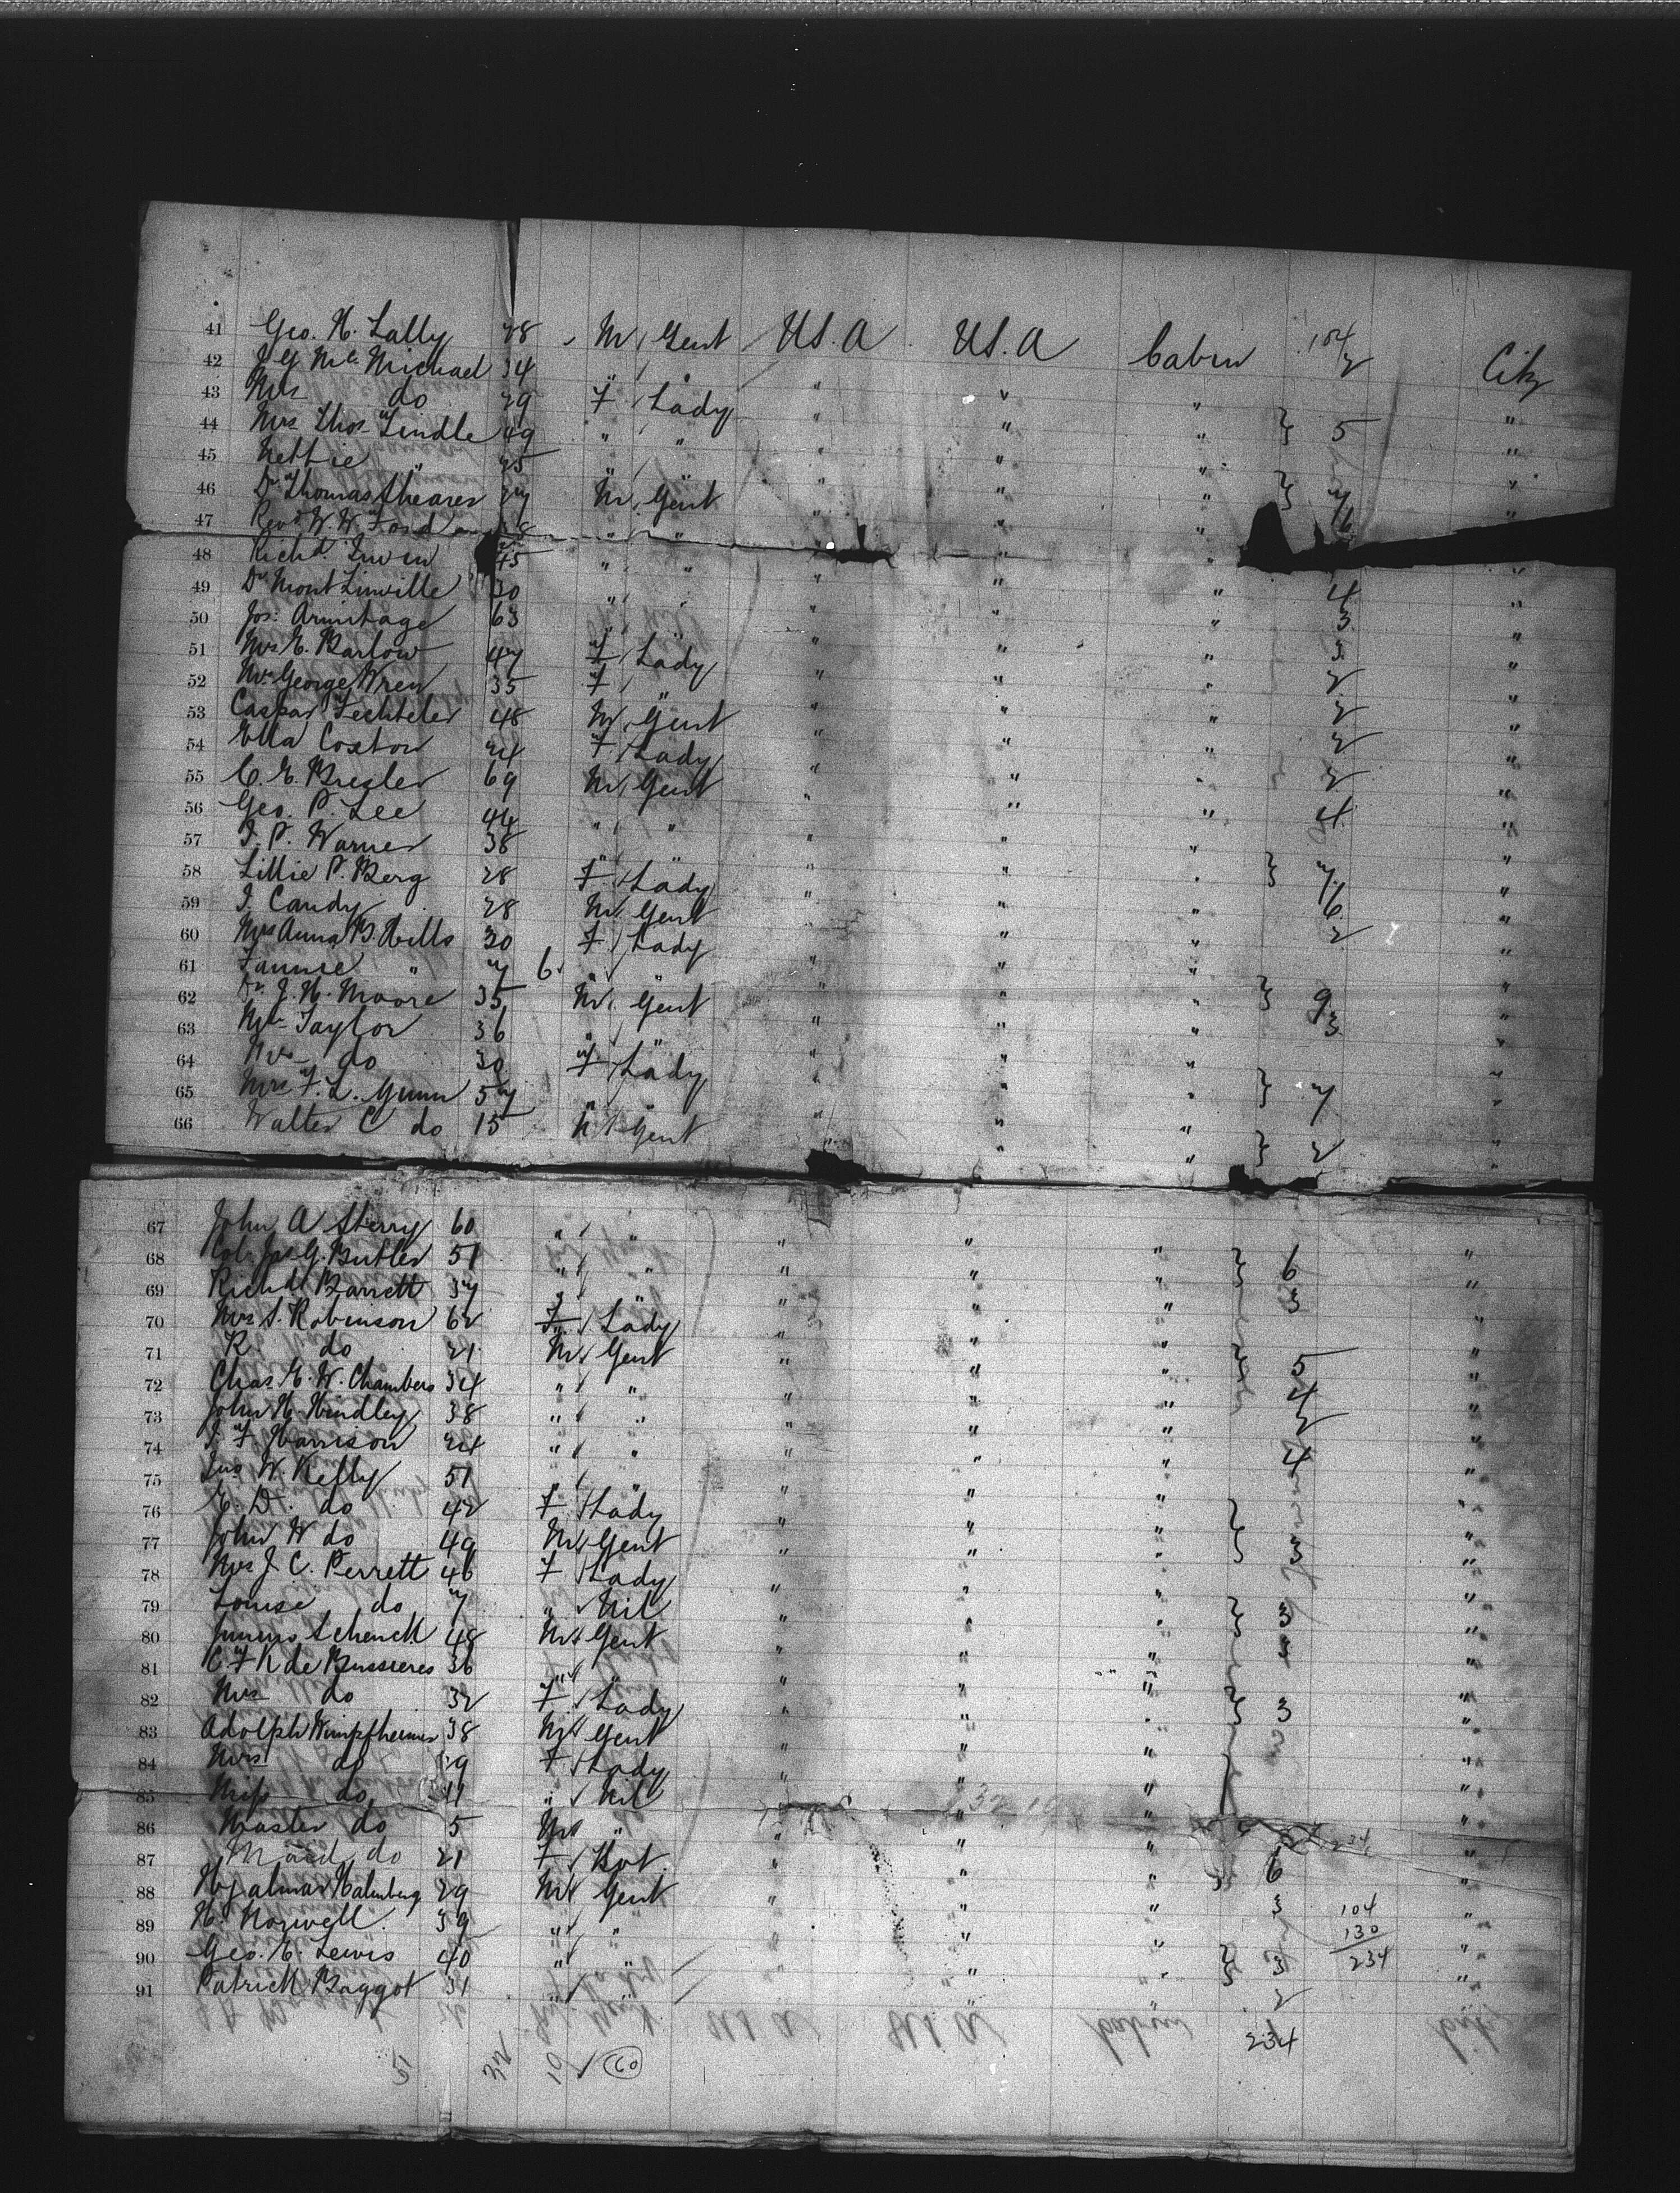 41 Geo. H. Lally 28 M Gent U.S.A U.S.A Cabin 104 2 City
42 J G Mc Michael 34 " " " " " "
43 Mrs do 29 F Lady " " " } 5 "
44 Mrs Thos Tindle 49 " " " " " "
45 Nettie " 25 " " " } 7 "
46 Dr Thomas Shearer 27 M Gent " " " 6 "
47 Revd W. W. 38 " " " " " "
48 Richd Irwin 45 " " " " " 4 "
49 Dr Mont Linville 30 " " " " " 3 "
50 Jos. Armitage 63 " " " 3 "
51 Mrs E. Barlow 47 F Lady " " " 2 "
52 Mrs George Wren 35 F " " " " 2 "
53 Caspar Fechteler 48 M Gent " " " 2 "
54 Ella Coxton 24 F Lady " " " 2 "
55 C. E. Bregler 69 M Gent " " " 4 "
56 Geo. P. Lee 44 " " " " " "
57 J. P. Warner 38 " " " } 7 "
58 Lillie P. Berg 28 F Lady " " " 6 "
59 J. Candy 28 M Gent " " " 2 "
60 Mrs Anna B. Hills 30 F Lady " " " "
61 Fannie " 7 6 " " " " " } 9 "
62 Dr. J. H. Moore 35 M Gent " " " 3 "
63 Mr Taylor 36 " " " " " "
64 Mrs do 30 F Lady " " " } 7 "
65 Mrs F. L. Gunn 57 " " " "
66 Walter C do 15 M Gent " " " } 2 "
67 John A Sterry 60 " " " " " "
68 Col. Jas G. Butler 51 " " " " " } 6 "
69 Richd Barrett 37 " " " " " 3 "
70 Mrs S. Robinson 62 F Lady " " " "
71 R. do 21 M Gent " " " } 5 "
72 Chas E. W. Chambers 34 " " " " " 4 "
73 John H. Hindley 38 " " " " " 2 "
74 J. F Harrison 24 " " " " " 4 "
75 Jas W. Kelly 51 " " " " " "
76 E. D. do 42 F Lady " " " "
77 John W do 49 M Gent " " " } 3 "
78 Mrs J. C. Perrett 46 F Lady " " " "
79 Louise do 7 " Nil " " " } 3 "
80 Schenck 48 M Gent " " " 3 "
81 C. F. K de Bussieres 36 " " " " " "
82 Mrs do 32 F Lady " " " } 3 "
83 Adolph Wimpfheimer 38 M Gent " " " "
84 Mrs do 29 F Lady " " " "
85 Miss do 11 " Nil " " " "
86 Master do 5 M " " " " "
87 Maid do 21 F " " " } 6 "
88 Hjalmar Halmberg 29 M Gent " " " 3 104 "
89 H. Norwell 39 " " " " " 130 "
90 Geo. E. Lewis 40 " " " " " } 3 234 "
91 Patrick Baggot 31 " " " " " 2 "
234
51 32 19 60